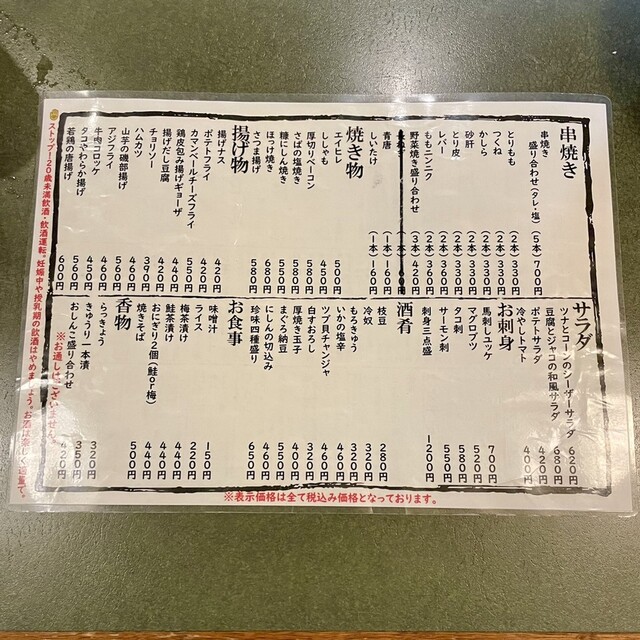 串焼き
串焼き
盛り合わせ（タレ・塩）（5本）700円
とりもも（2本）330円
つくね（2本）330円
かしら（2本）330円
砂肝（2本）330円
とり皮（2本）330円
レバー（2本）360円
ももニンニク（2本）360円
野菜焼き盛り合わせ（3本）420円
青唐（1本）160円
しいたけ（1本）160円
焼き物
エイヒレ 500円
ししゃも 450円
厚切りベーコン 580円
さばの塩焼き
糠にしん焼き
ほっけ焼き 680円
さつま揚げ 580円
揚げ物
揚げナス 420円
ポテトフライ 420円
カマンベールチーズフライ 550円
鶏皮包み揚げギョーザ 440円
揚げだし豆腐 420円
チョリソー 420円
ハムカツ 390円
山芋の磯部揚げ 460円
アジフライ 560円
牛肉コロッケ 460円
タコやわらか揚げ 560円
若鶏の唐揚げ 600円
サラダ
ツナとコーンのシーザーサラダ 620円
豆腐とジャコの和風サラダ 680円
ポテトサラダ 420円
冷やしトマト 400円
お刺身
馬刺しユッケ 700円
マグロブツ 520円
タコ刺 580円
サーモン刺 550円
刺身三点盛 1200円
酒肴
枝豆 280円
冷奴 320円
もろきゅう 320円
いかの塩辛 460円
ツブ貝チャンジャ 460円
白すおろし 320円
厚焼き玉子 400円
まぐろ納豆 550円
にしんの切込み 460円
珍味四種盛り 650円
お食事
味噌汁 150円
ライス 220円
梅茶漬け 440円
鮭茶漬け 440円
おにぎり2個（鮭or梅） 440円
焼きそば 500円
香物
らっきょう 320円
きゅうり一本漬 350円
おしんこ盛り合わせ 420円
※お通しはございません。
ストップ！20歳未満飲酒・飲酒運転。妊娠中や授乳期の飲酒はやめましょう。お酒は楽しく適量で。
※表示価格は全て税込み価格となっております。